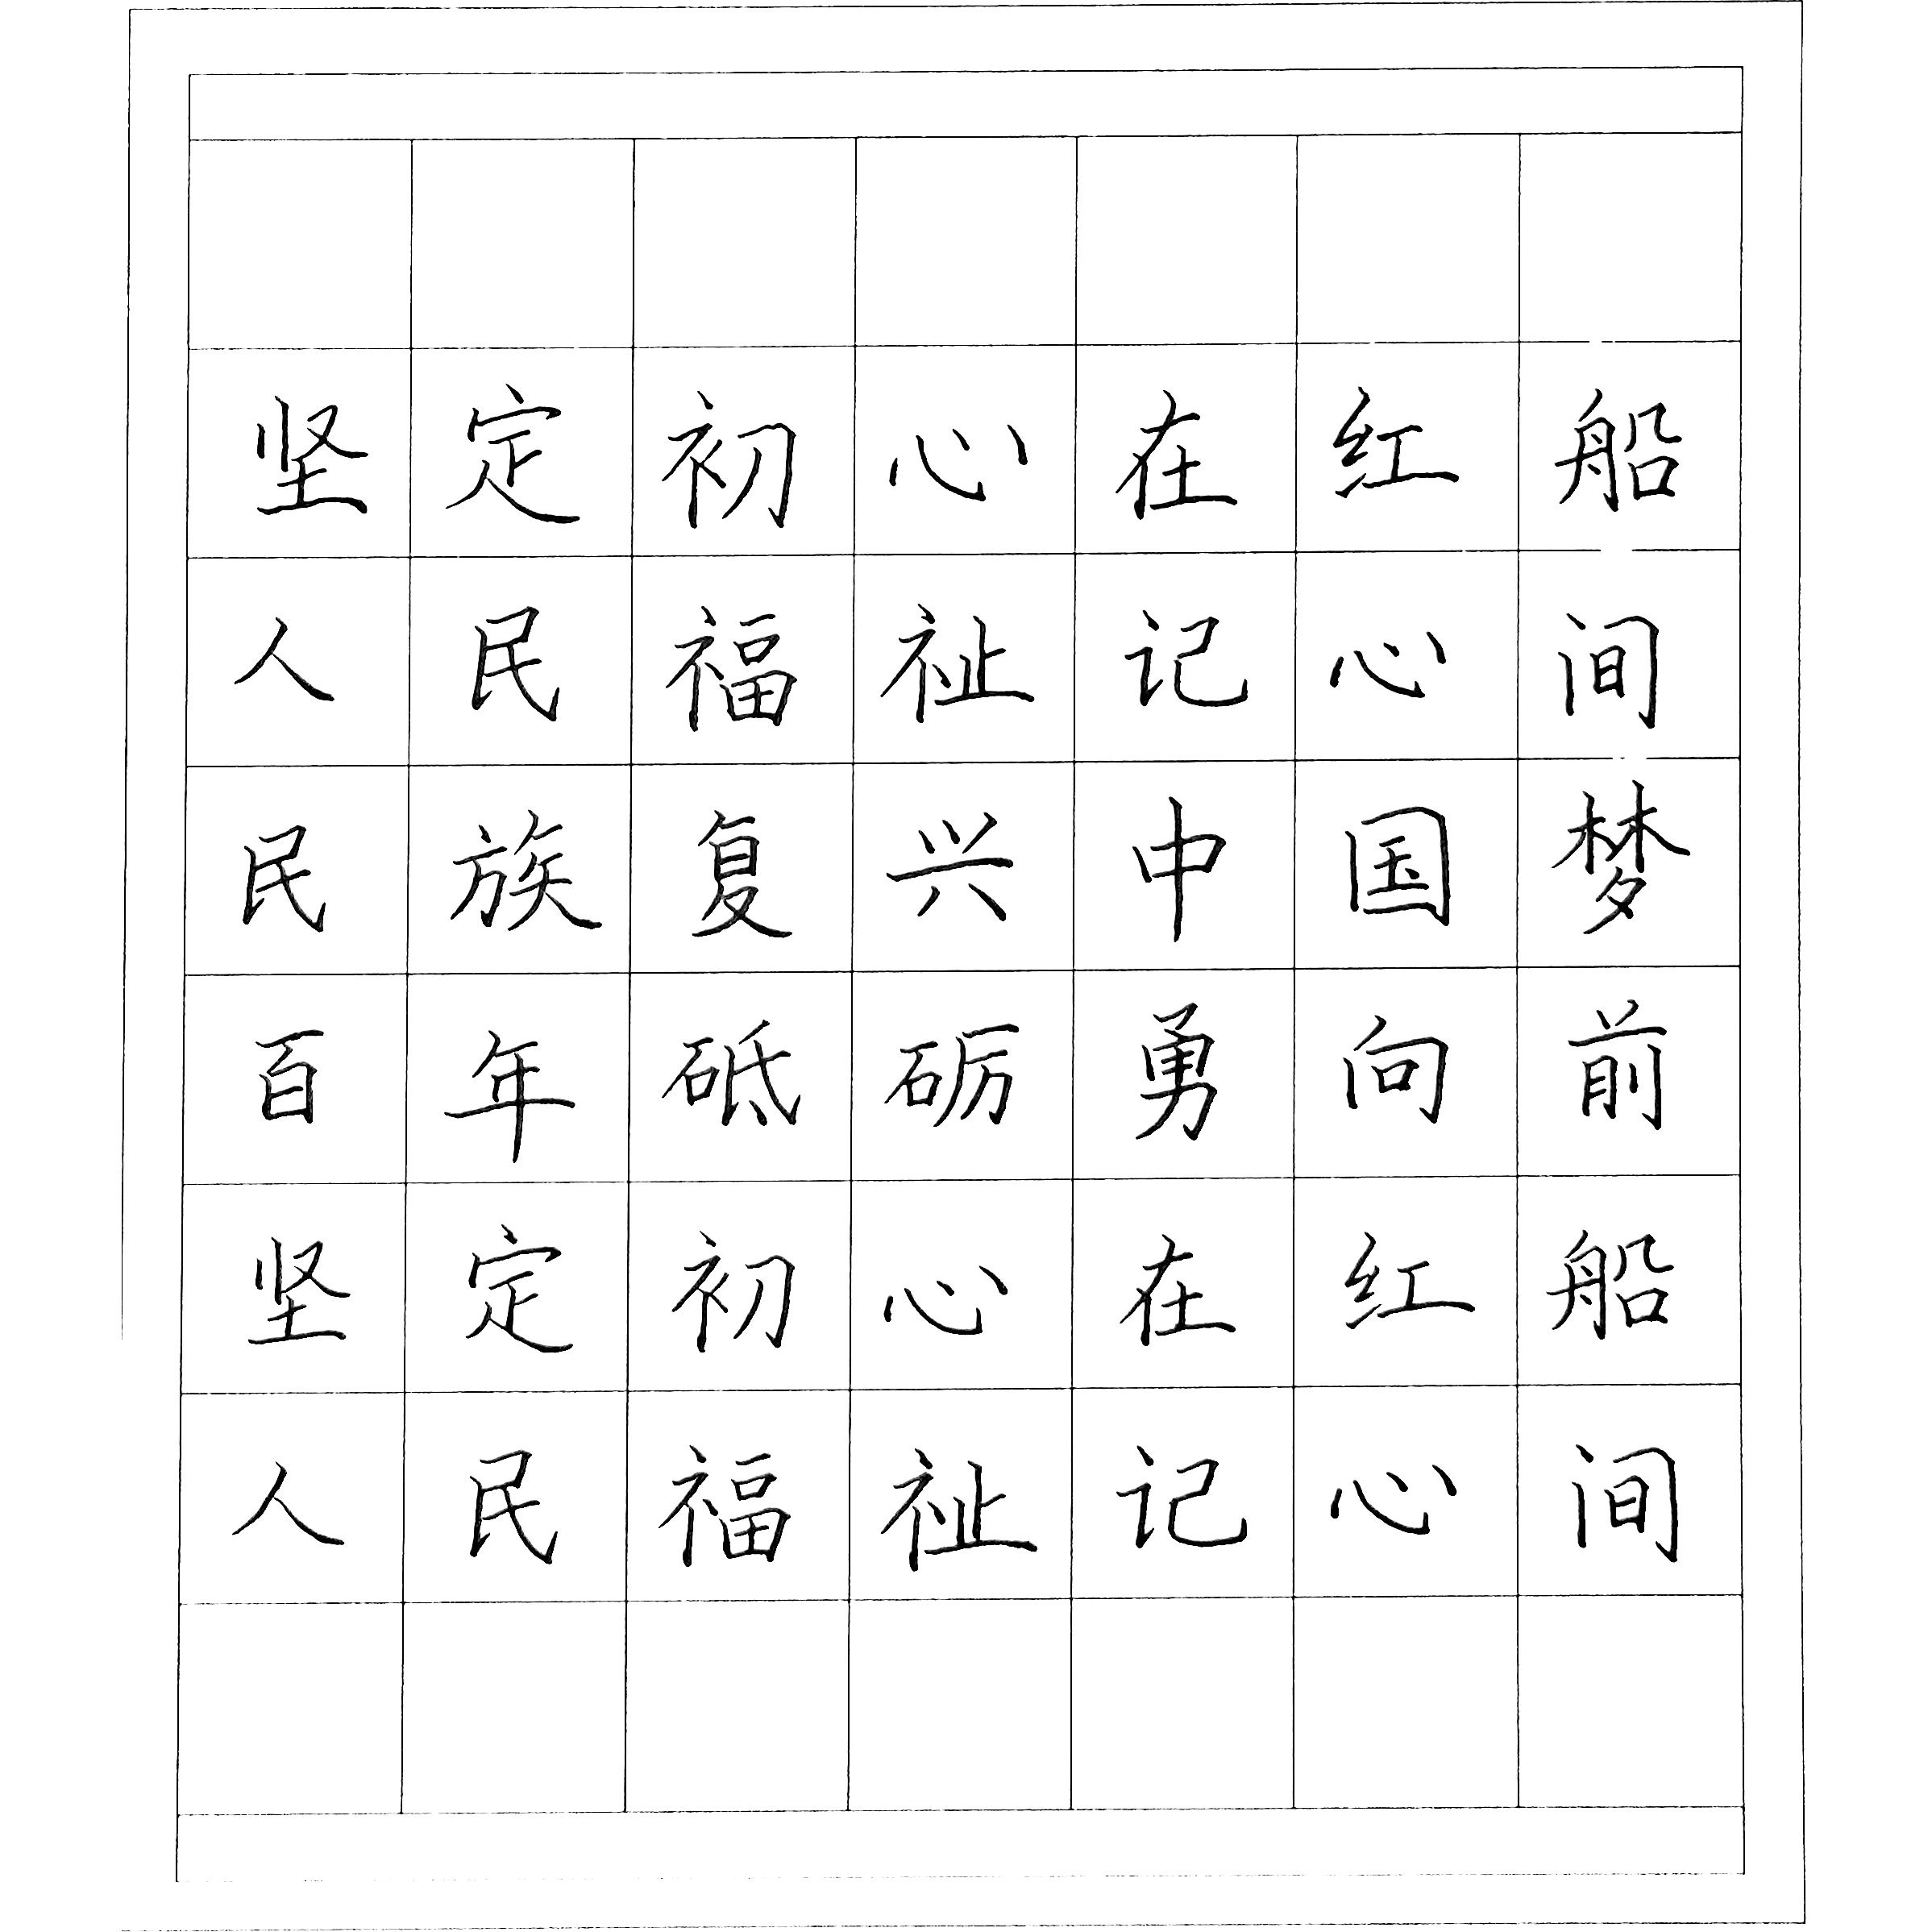 坚定初心在红船
人民福祉记心间
民族复兴中国梦
百年砥砺勇向前
坚定初心在红船
人民福祉记心间